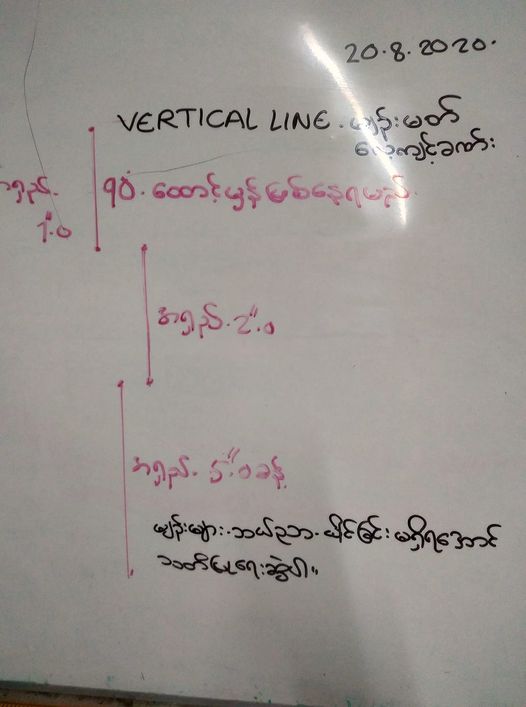 20.8.2020.
VERTICAL LINE. မျဉ်းမတ်
လေ့ကျင့်ခဏ်း
အရှည်. ၉၀ံ. ထောင့်မှန်ဖြစ်နေရမည်.
1".0
အရှည်. 2".0
အရှည်. 5".0 ခန့်
မျဉ်းများ. ဘယ်ညာ. ယိုင်ခြင်း မရှိရအောင်
သတိပြုရေးဆွဲပါ။